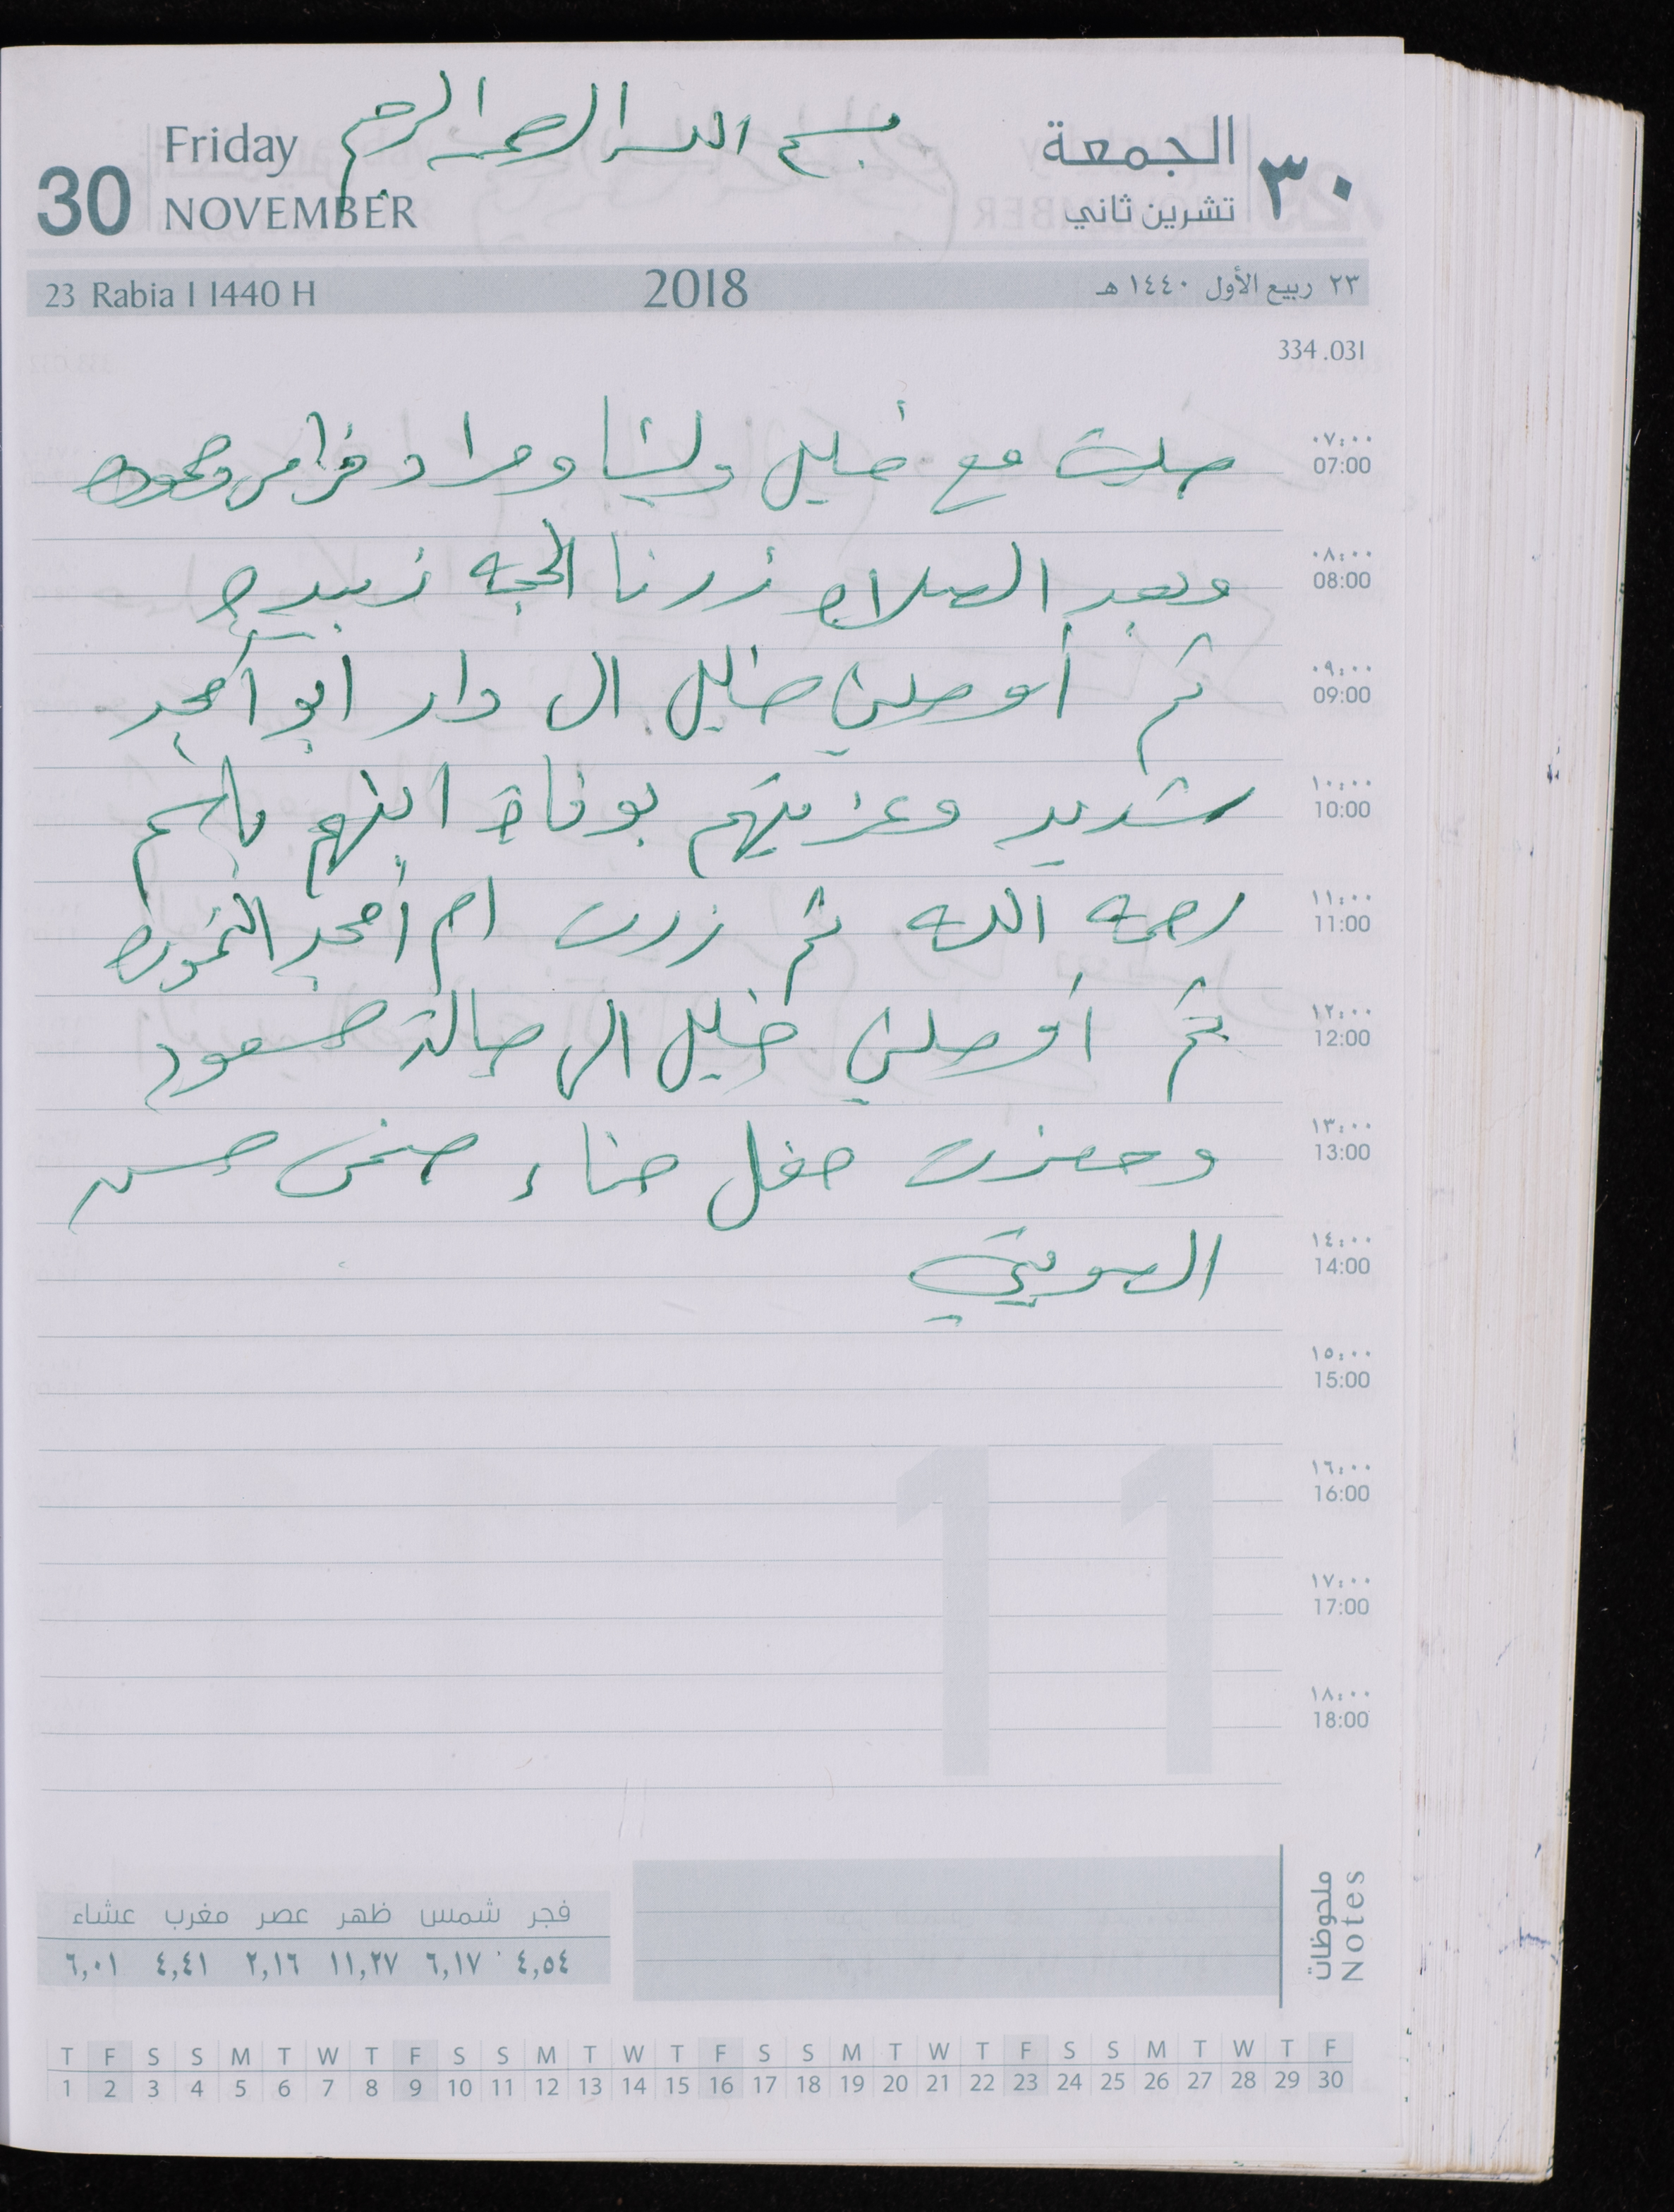 بسم الله الرحمن الرحيم
Friday
30
NOVEMBER
الجمعة
٣٠
تشرين ثاني
23 Rabia I 1440 H
2018
٢٣ ربيع الأول ١٤٤٠ هـ
334.031
صليت مع خليل وليث ومراد وفراس وحموده
وبعد الصلاه زرنا الحجه زبيده
ثم أوصلني خليل الى دار ابو أمجد
شديد وعزيتهم بوفاة ابنهم باسم
رحمه الله ثم زرت ام أمجد النمورة
ثم أوصلني خليل الى صالة مسعود
وحضرت حفل حناء حسن
٠٧:٠٠
07:00
٠٨:٠٠
08:00
٠٩:٠٠
09:00
١٠:٠٠
10:00
١١:٠٠
11:00
١٢:٠٠
12:00
١٣:٠٠
13:00
١٤:٠٠
14:00
١٥:٠٠
15:00
١٦:٠٠
16:00
١٧:٠٠
17:00
١٨:٠٠
18:00
11
ملحوظات
Notes
فجر شمس ظهر عصر مغرب عشاء
٤,٥٤ ٦,١٧ ١١,٢٧ ٢,١٦ ٤,٤١ ٦,٠١
T F S S M T W T F S S M T W T F S S M T W T F S S M T W T F
1 2 3 4 5 6 7 8 9 10 11 12 13 14 15 16 17 18 19 20 21 22 23 24 25 26 27 28 29 30